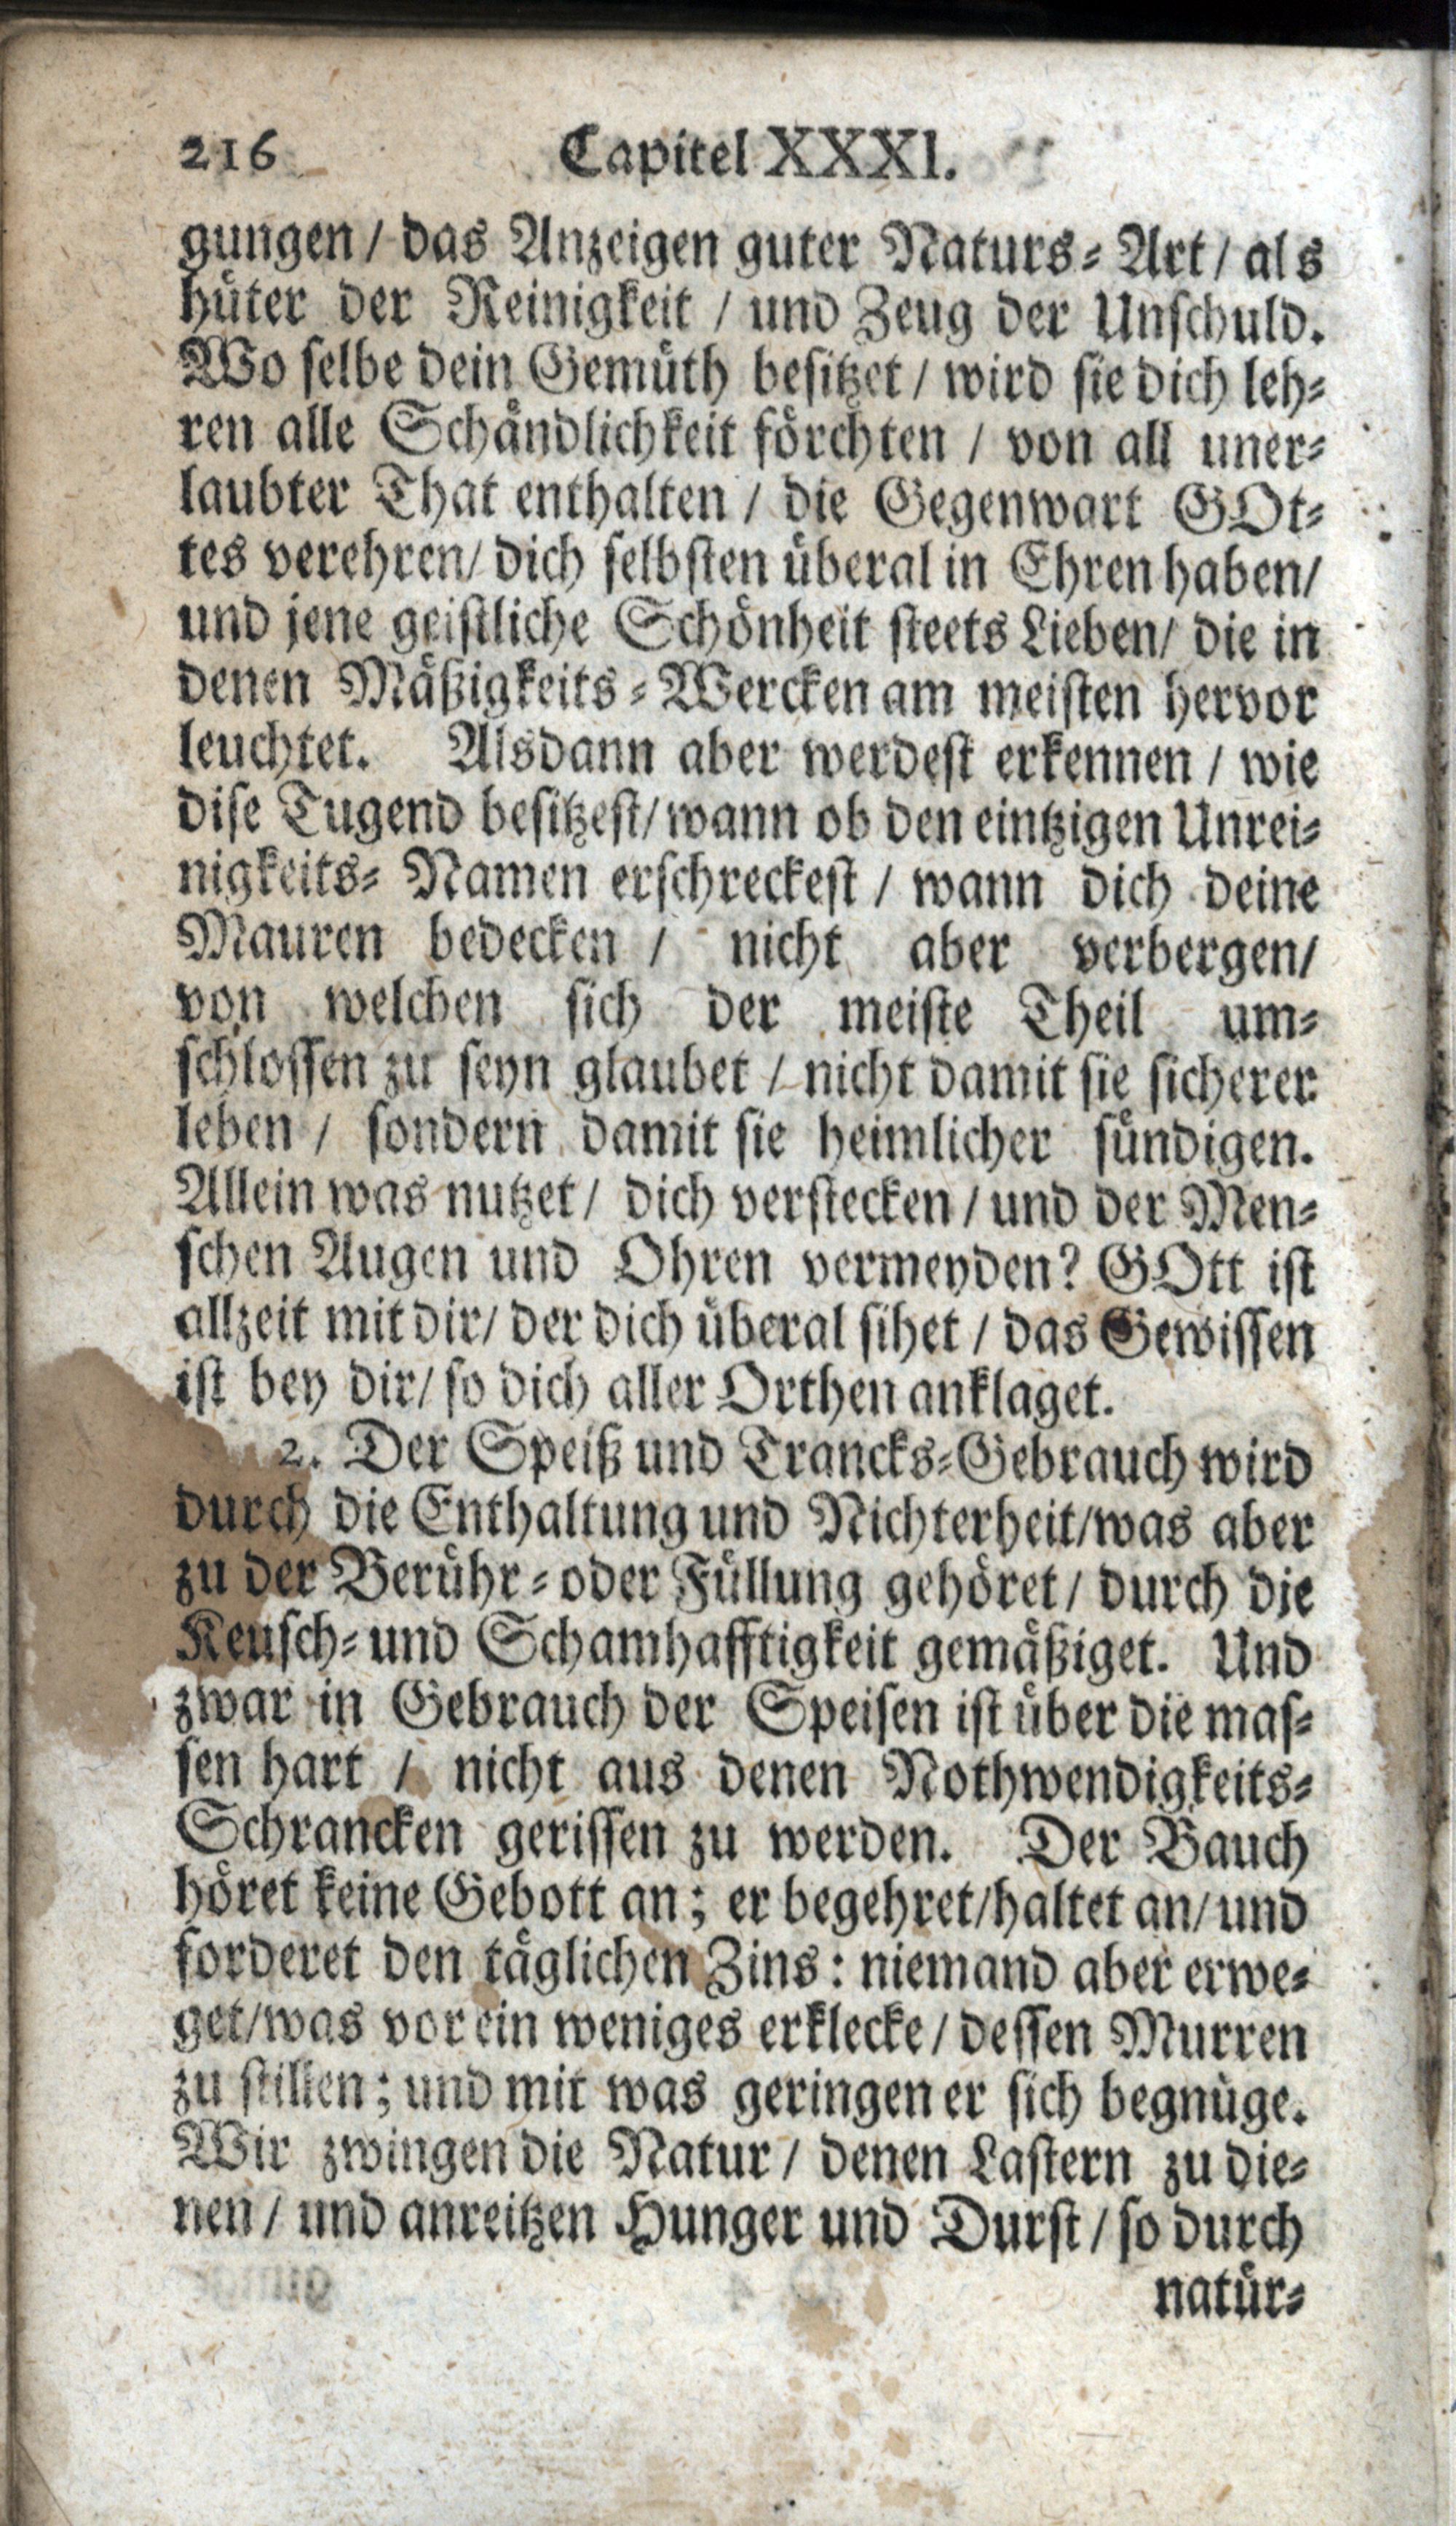 216 Capitel XXXI.
gungen / das Anzeigen guter Naturs-Art / als
hüter der Reinigkeit / und Zeug der Unschuld.
Wo selbe dein Gemüth besitzet / wird sie dich leh-
ren alle Schändlichkeit förchten / von all uner-
laubter That enthalten / die Gegenwart GOt-
tes verehren / dich selbsten überal in Ehren haben /
und jene geistliche Schönheit steets Lieben / die in
denen Mäßigkeits-Wercken am meisten hervor
leuchtet. Alsdann aber werdest erkennen / wie
dise Tugend besitzest / wann ob den eintzigen Unrei-
nigkeits-Namen erschreckest / wann dich deine
Mauren bedecken / nicht aber verbergen /
von welchen sich der meiste Theil um-
schlossen zu seyn glaubet / nicht damit sie sicherer
leben / sondern damit sie heimlicher sündigen.
Allein was nutzet / dich verstecken / und der Men-
schen Augen und Ohren vermeyden? GOtt ist
allzeit mit dir / der dich überal sihet / das Gewissen
ist bey dir / so dich aller Orthen anklaget.
2. Der Speiß und Trancks-Gebrauch wird
durch die Enthaltung und Nichterheit / was aber
zu der Berühr- oder Füllung gehöret / durch die
Keusch- und Schamhafftigkeit gemäßiget. Und
zwar in Gebrauch der Speisen ist über die mas-
sen hart / nicht aus denen Nothwendigkeits-
Schrancken gerissen zu werden. Der Bauch
höret keine Gebott an; er begehret / haltet an / und
forderet den täglichen Zins: niemand aber erwe-
get / was vor ein weniges erklecke / dessen Murren
zu stillen; und mit was geringen er sich begnüge.
Wir zwingen die Natur / denen Lastern zu die-
nen / und anreitzen Hunger und Durst / so durch
natür-